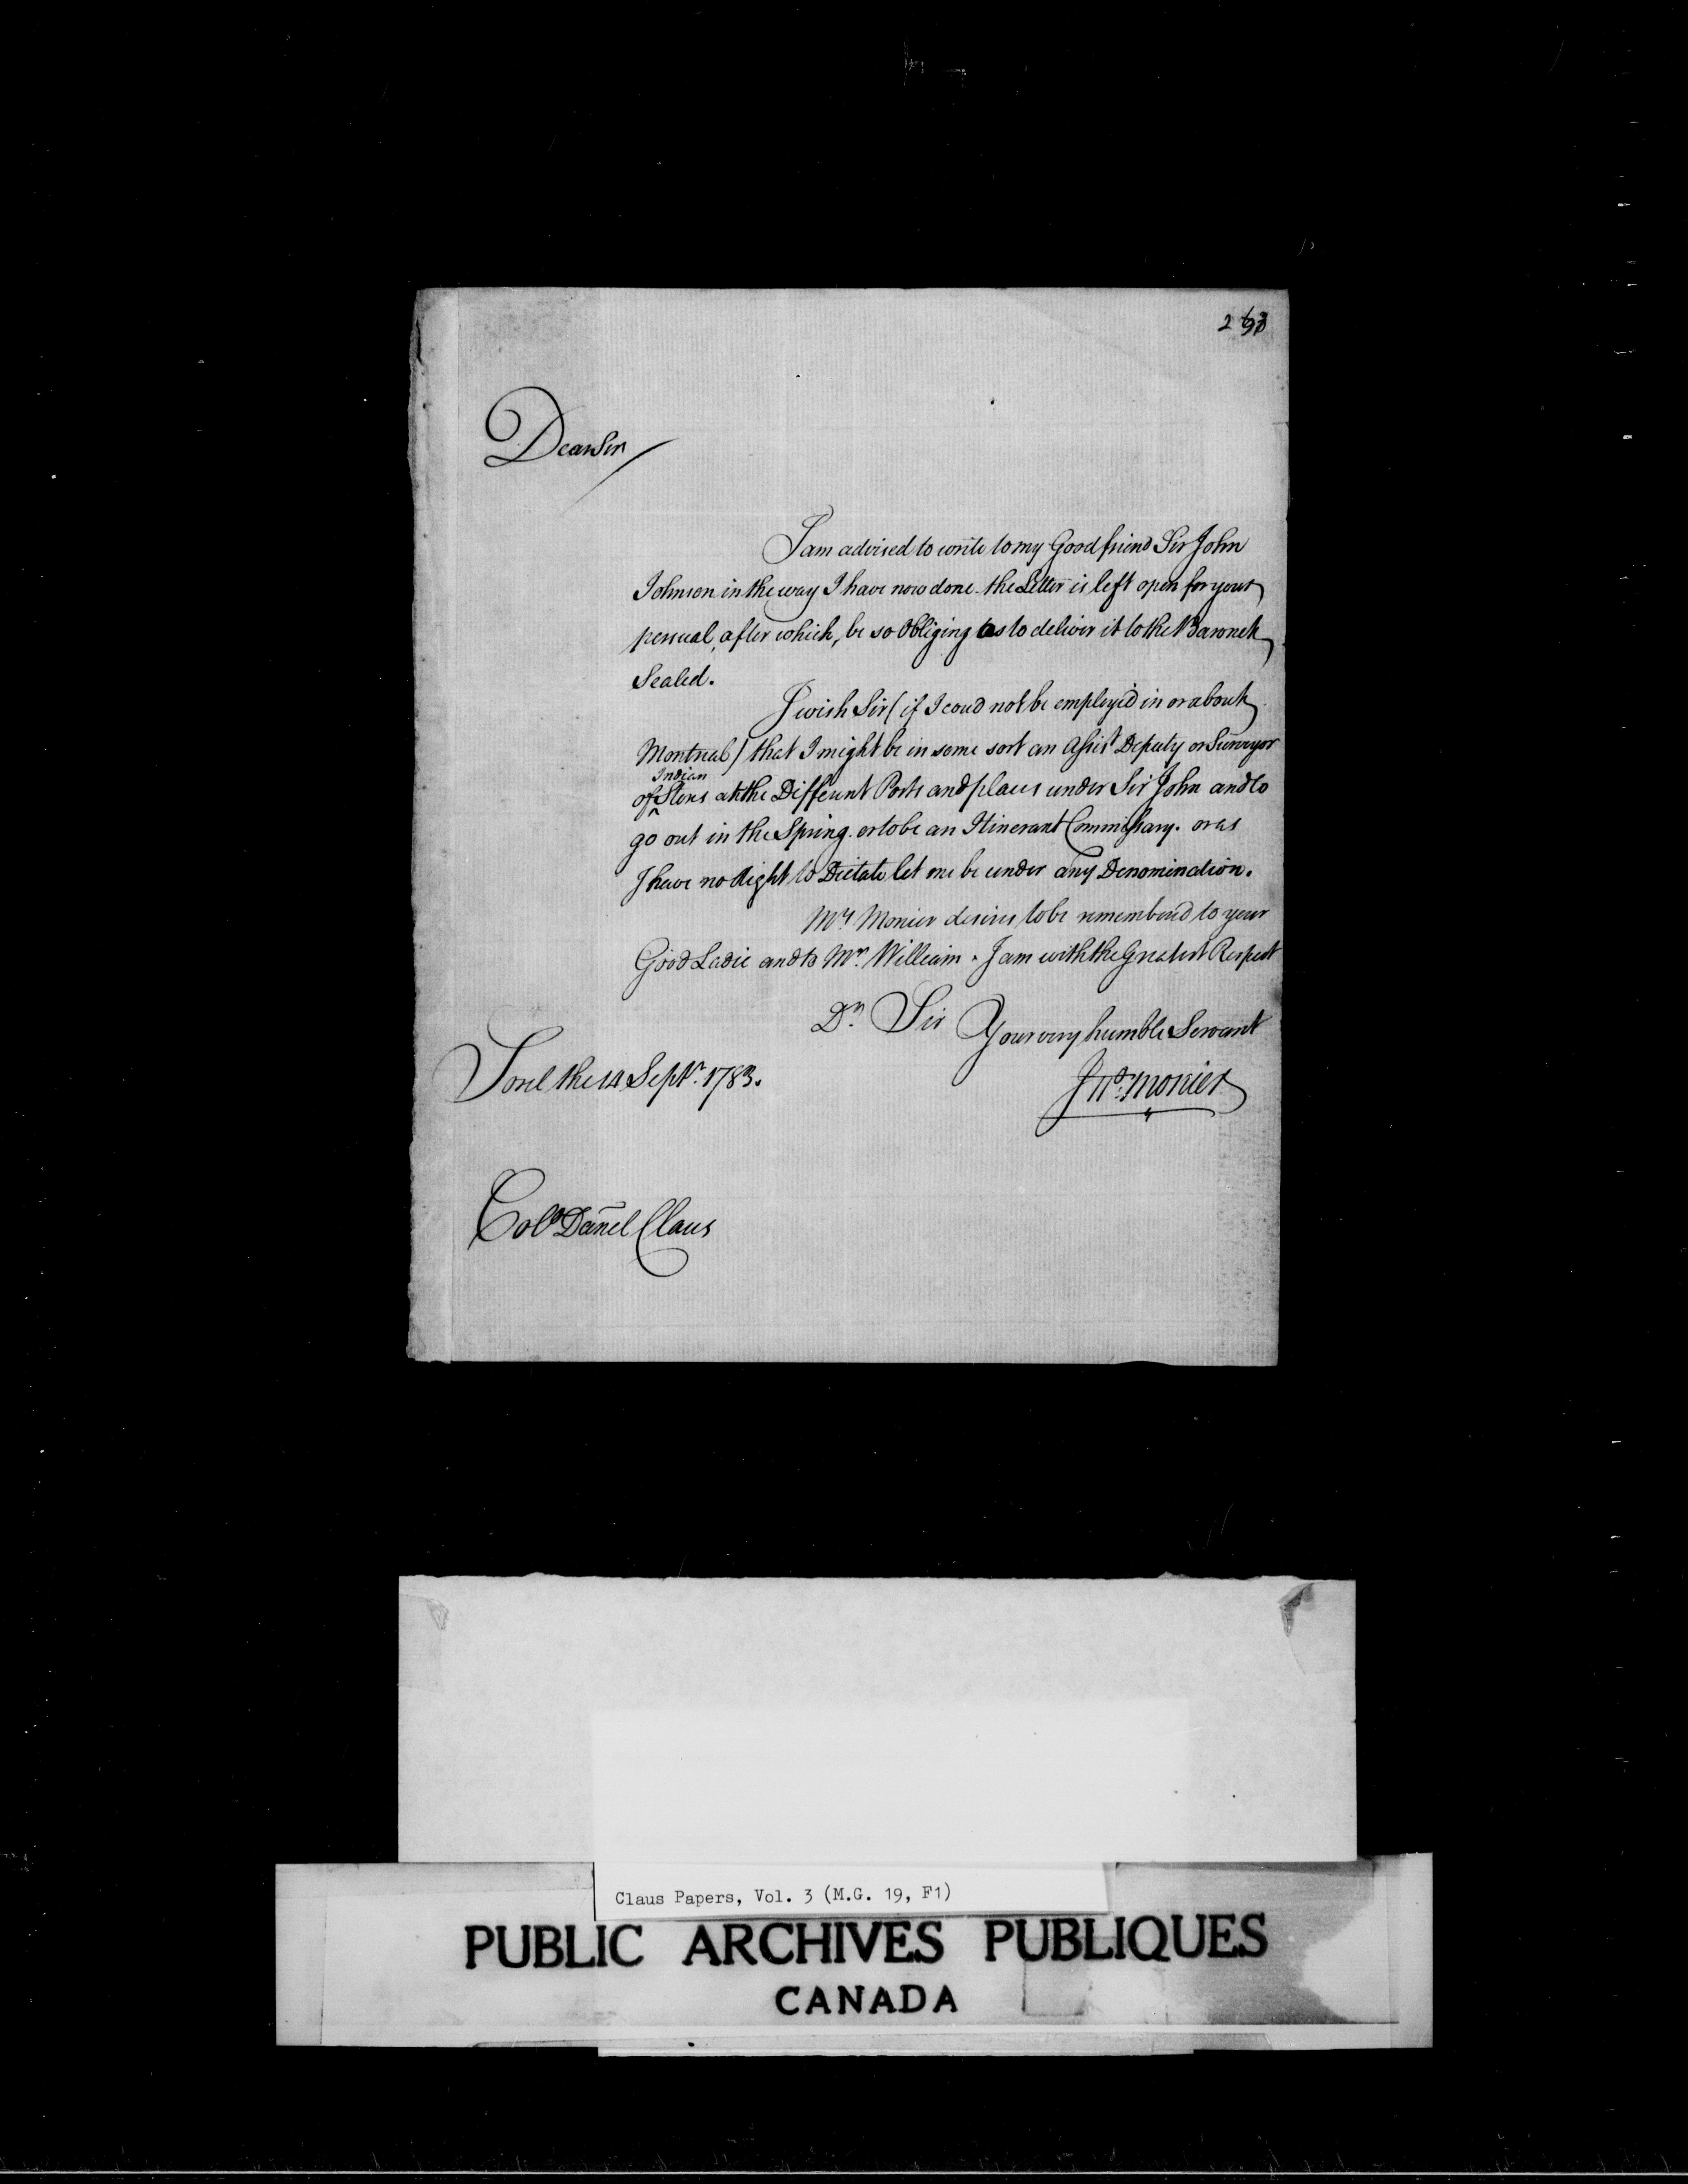 Dear Sir
I am advised to write to my Good friend Sir John
Johnson in the way I have now done. the Letter is left open for your
perusal, after which, be so Obliging as to deliver it to the Baronet
Sealed.
I wish Sir (if I coud not be employ'd in or about
Montreal) that I might be in some sort an Assist Deputy or Surveyor
Indian
of Stors at the Different Posts and places under Sir John and to
go out in the Spring. or to be an Itinerant Commissary. or as
I have no Right to Dictate let me be under any Denomination.
Mrs Monier desires to be rememberd to your
Good Ladie and to Mr. William. I am with the Greatest Respect
Dr. Sir Your very humble Servant
Sorel the 14 Septr. 1783.
Jno. Monier
Colo Daniel Claus
Claus Papers, Vol. 3 (M.G. 19, F1)
PUBLIC ARCHIVES PUBLIQUES
CANADA